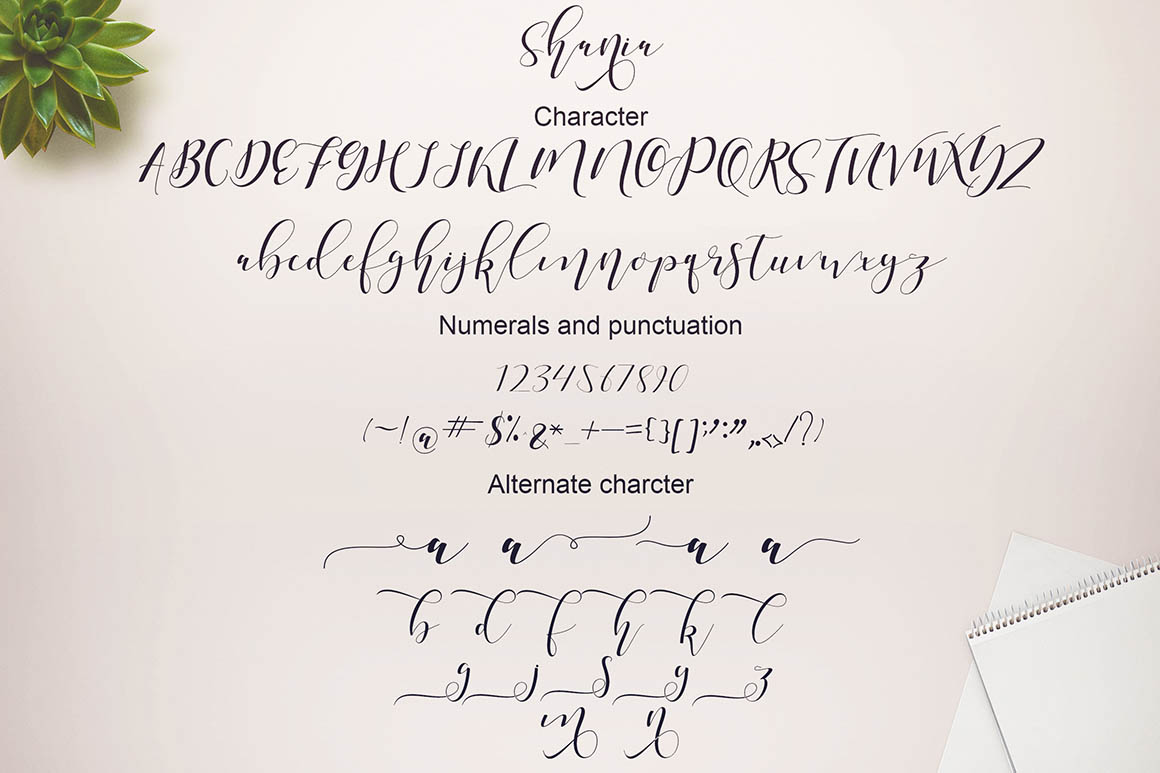 Shania
Character
ABCDEFGHIJKLMNOPQRSTUVWXYZ
abcdefghijklmnopqrstuvwxyz
Numerals and punctuation
1234567890
(~!@#$%^&*_+—={}[];':",.<>/?)
Alternate charcter
a a a a
b d f h k l
g j s y z
m n